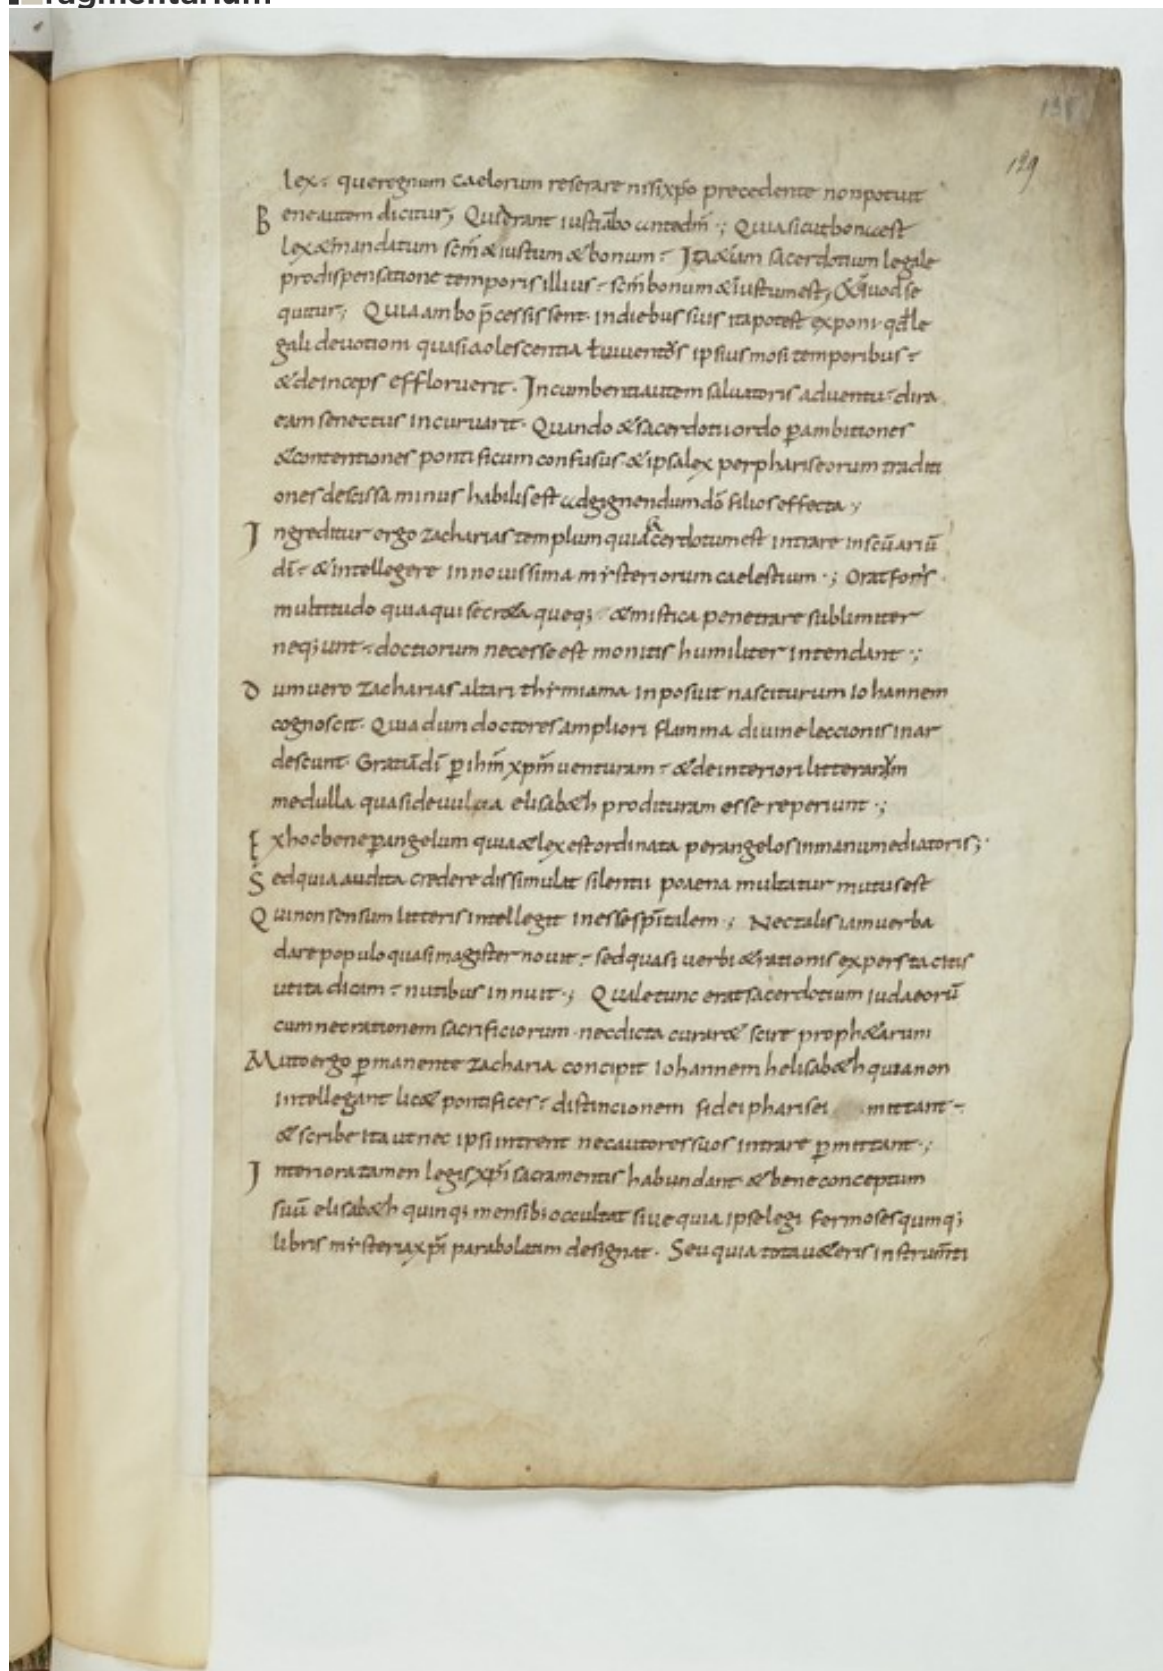 ragmentarium
135
129
lex; que regnum caelorum reserare nisi xp̄o precedente non potuit
Bene autem dicitur; Qui erant iusti abo ante dm̄ ·; Quia sicut bona est
lex & mandatum scm̄ & iustum & bonum; Ita & iam sacerdotium legale
pro dispensatione temporis illius; scm̄ bonum & iustum est; & quod se
quitur; Quia ambo p̄cessissent· in diebus suis ita potest exponi· qđ le
gali devotioni quasi adolescentia ł iuventus ipsius mosi temporibus;
& deinceps effloruerit· Incumbenti autem salvatoris adventu; dira
eam senectus incurvarit· Quando & sacerdotii ordo p ambitiones
& contentiones pontificum confusus & ipsa lex per phariseorum traditi
ones descissa minus habilis est ad gignendum dō filios effecta;
Ingreditur ergo zacharias templum quia sacerdotum est intrare in scūariū
dī; & intellegere in novissima mysteriorum caelestium ·; Orat foris
multitudo quia qui secr&a queq; & mistica penetrare sublimiter
neq;unt; doctiorum necesse est monitis humiliter intendant ·;
dum vero zacharias altari thymiama inposuit nasciturum iohannem
cognoscit· Quia dum doctores ampliori flamma divine leccionis inar
descunt· Gratiā dī p ihm̄ xpm̄ venturam; & de interiori litterarum
medulla quasi de vulva elisab&h prodituram esse reperiunt ·;
Ex hoc bene p angelum quia & lex est ordinata per angelos in manu mediatoris;·
Sed quia audita credere dissimulat silentii poaena multatur mutus est
Qui non sensum litteris intellegit inesse sp̄italem ·; Nec talis iam verba
dare populo quasi magister novit; sed quasi verbi & rationis expers tacitis
ut ita dicam; nutibus innuit ·; Quale tunc erat sacerdotium iudaeorū
cum nec rationem sacrificiorum· nec dicta curar& scire proph&arum
Muto ergo p manente zacharia concipit iohannem helisab&h quia non
intellegant lic& pontifices; distincionem fidei pharisei mittant;
& scribe ita ut nec ipsi intrent nec autores suos intrare p mittant ·;
Interiora tamen legis xp̄i sacramentis habundant & bene conceptum
suū elisab&h quinq; mensib; occultat sive quia ipse legi fer moses quinq;
libris mysteria xp̄i parabolatim designat· Seu quia tota v&eris instrum̄ti